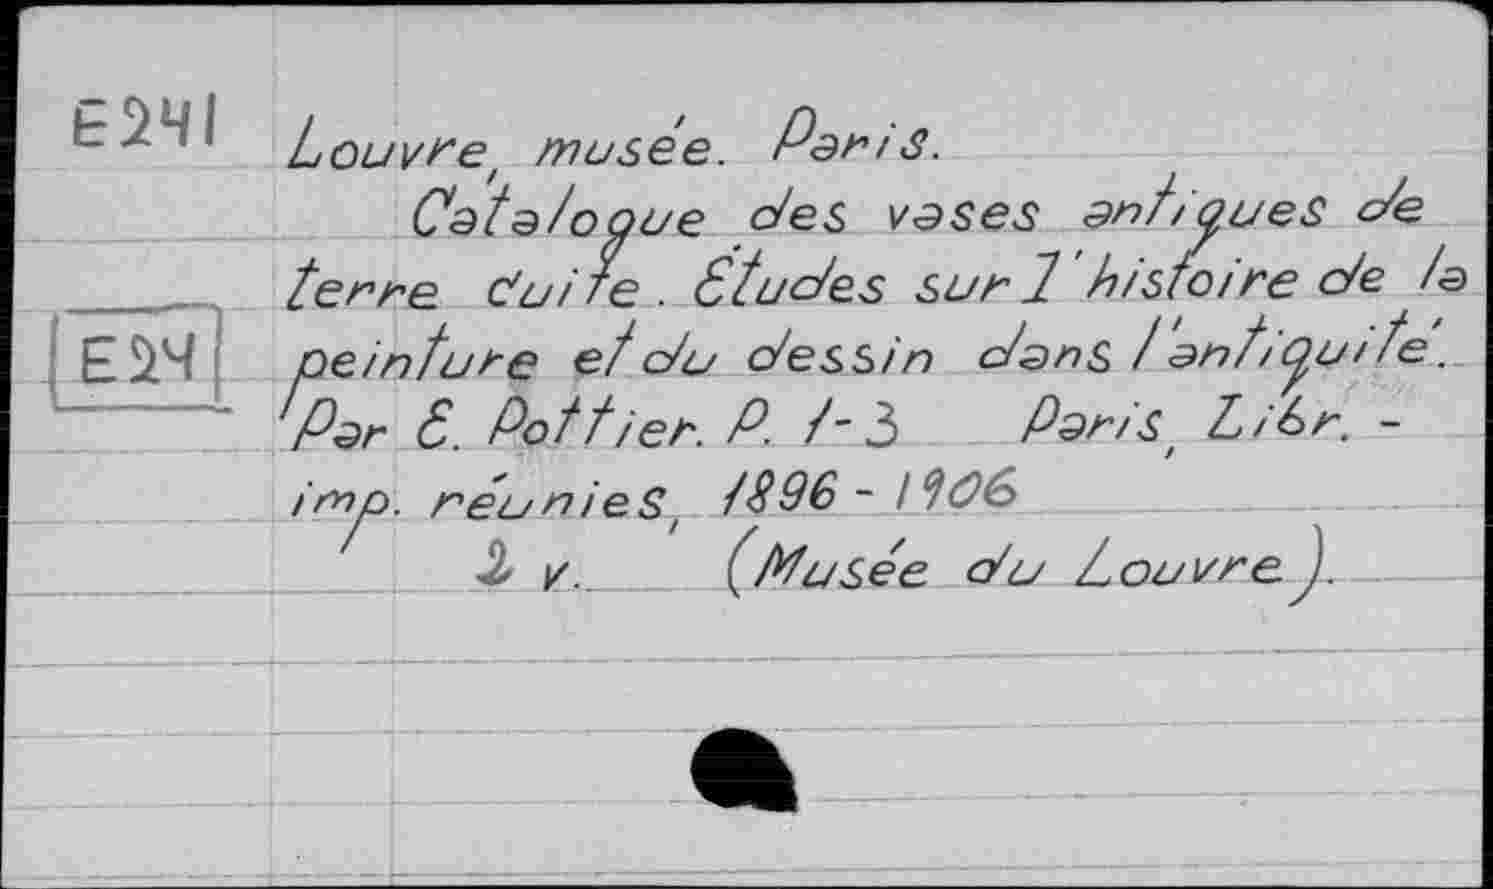 E241 Louvre, musée. Paris.
Catalogue des vases antiques de
terre cuite. Études sur l'histoire de la
E24 peinture et du dessin dans l'antiquité.
Par E. Pottier. P. 1-3 Paris, Libr. -
imp. réunies, 1896 - 1906
2 v. (Musée du Louvre).